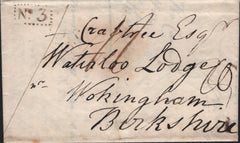 No. 3
Crabtree Esqr
Waterloo Lodge
nr Wokingham
Berkshire